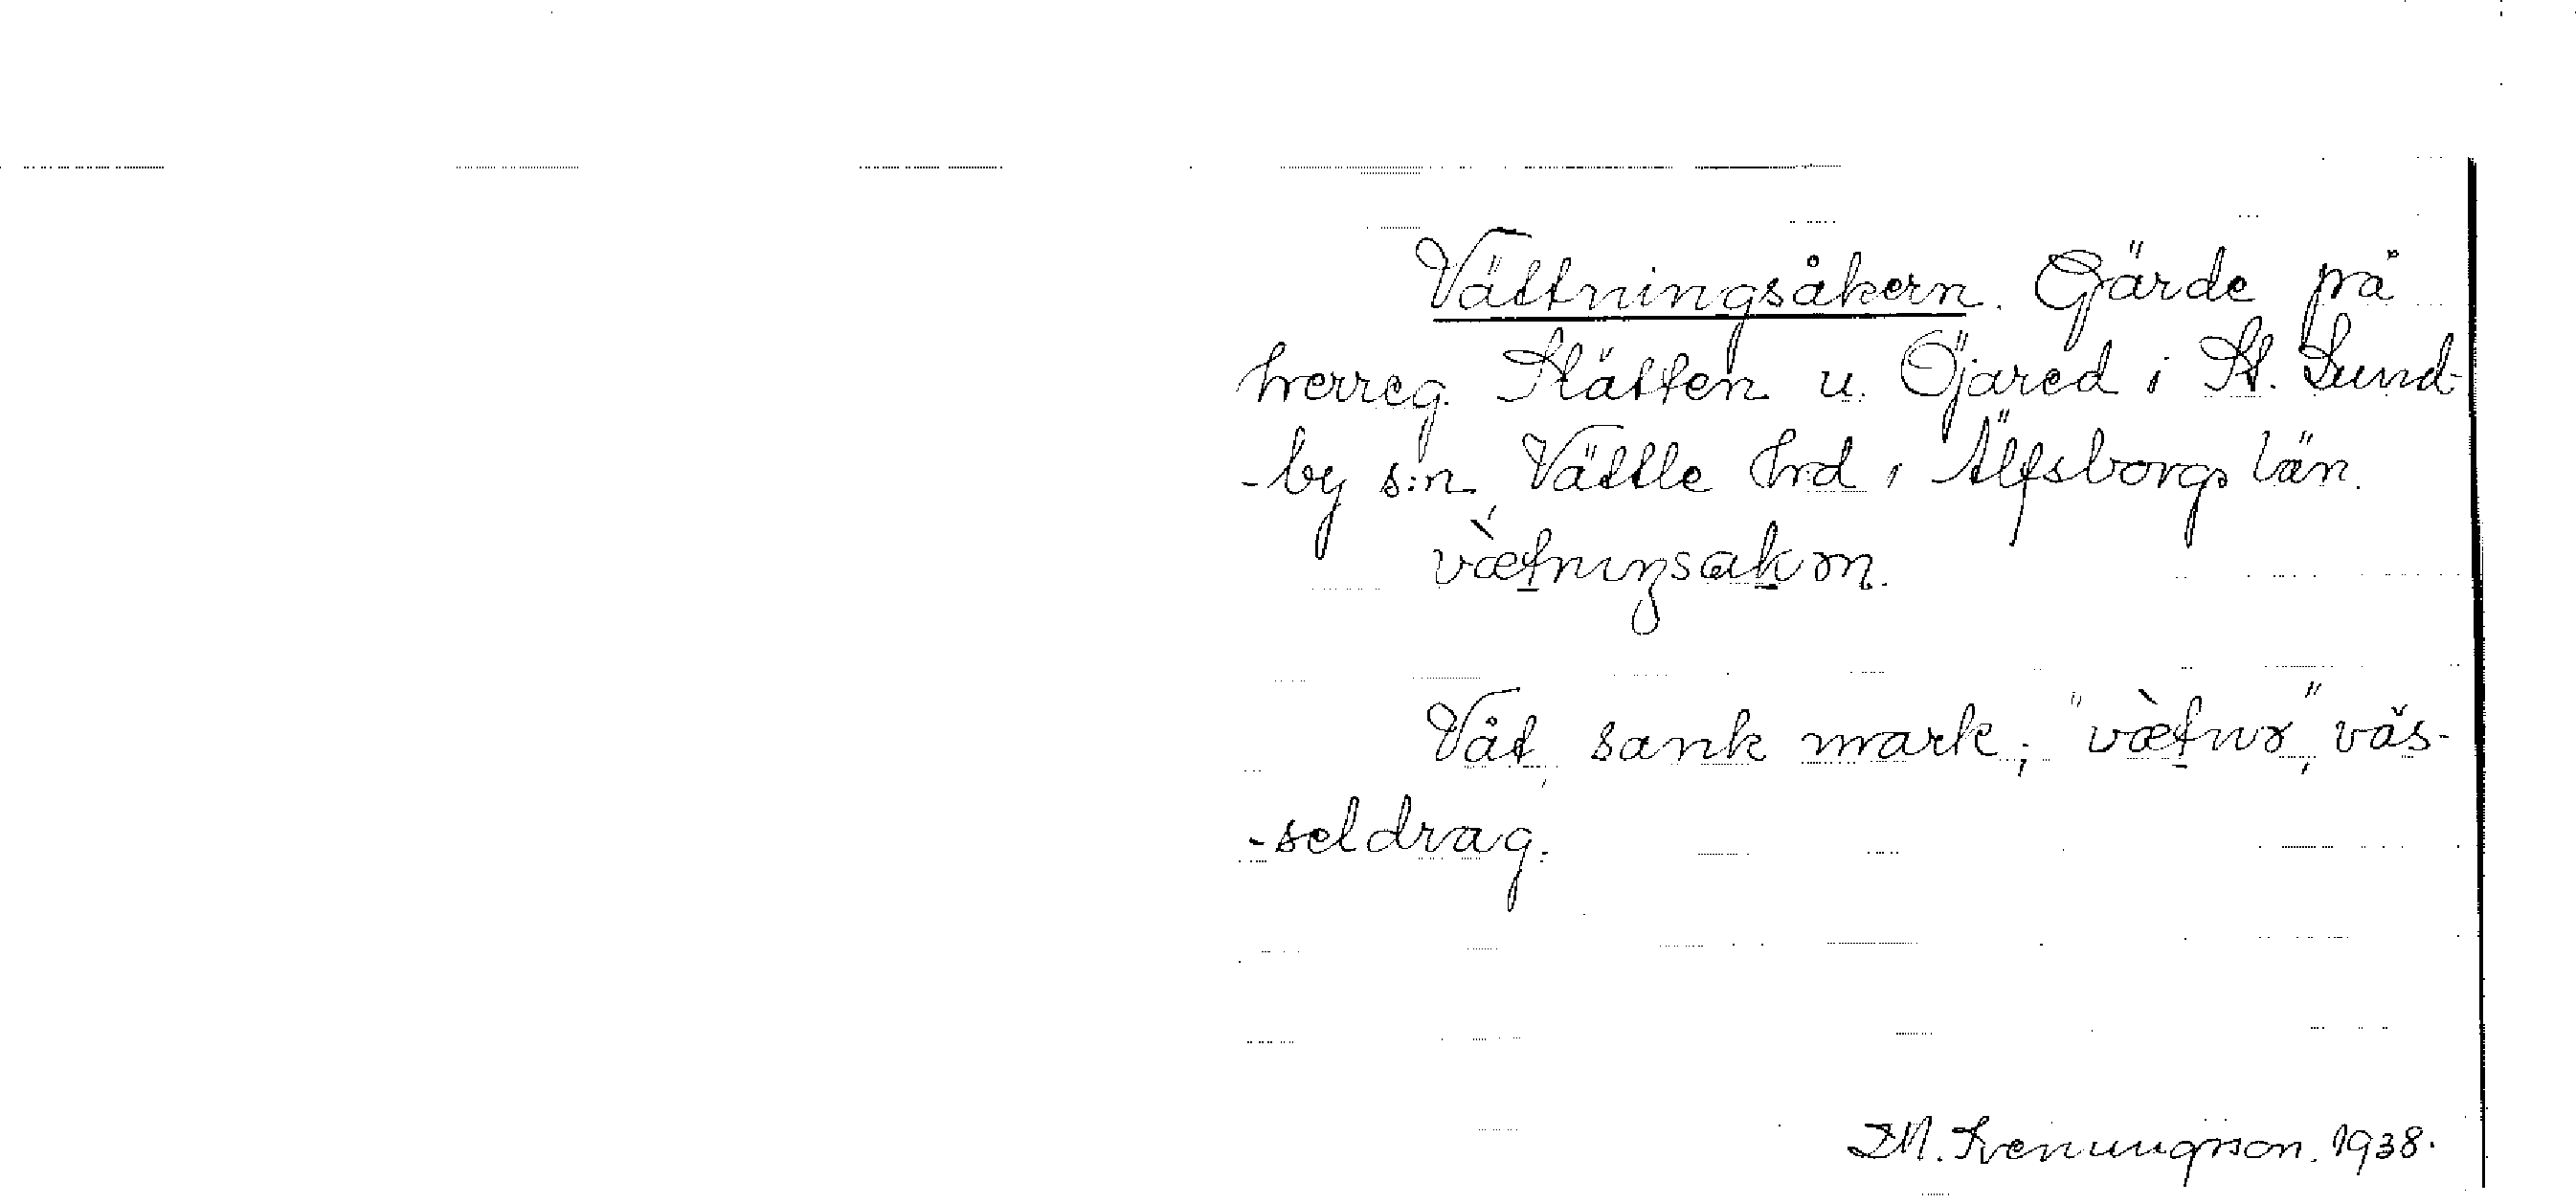 Vättningsåkern. Gärde på
herreg. Slätten u. Öjared i St. Lund-
-by s:n, Vättle hrd i Älfsborgs län.
vætnıŋsakɷn.
Våt, sank mark; "vætnıɷ", väs-
-seldrag.
I.M. Svenungsson. 1938.